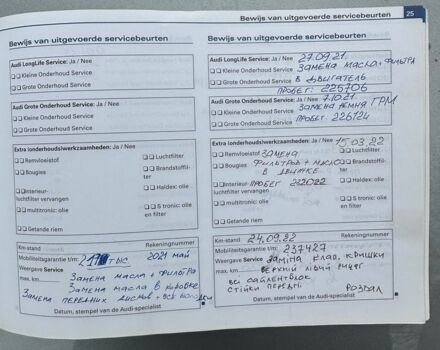 25
Bewijs van uitgevoerde servicebeurten
Audi LongLife Service: Ja / Nee
Kleine Onderhoud Service
Grote Onderhoud Service
Audi Grote Onderhoud Service: Ja / Nee
Kleine Onderhoud Service
Grote Onderhoud Service
Extra (onderhouds)werkzaamheden: Ja / Nee
Remvloeistof
Luchtfilter
Bougies
Brandstoffilter
Interieurluchtfilter vervangen
Haldex: olie
multitronic: olie
S tronic: olie en filter
Getande riem
Km-stand
Rekeningnummer
Mobiliteitsgarantie t/m:
тыс
2021 май
Weergave Service
max. km
Замена масла + фильтра
Замена масла в коробке
Замена передних дисков +
Datum, stempel van de Audi-specialist
Bewijs van uitgevoerde servicebeurten
Audi LongLife Service: Ja / Nee
27.09.21.
Kleine Onderhoud Service
Замена масла + фильтра
Grote Onderhoud Service
в двигатель
пробег: 225706
Audi Grote Onderhoud Service: Ja / Nee
7.10.21
Kleine Onderhoud Service
Замена ремня ГРМ
Grote Onderhoud Service
пробег: 226124
Extra (onderhouds)werkzaamheden: Ja / Nee
15.03.22
Remvloeistof
Замена
Luchtfilter
Bougies
фильтров + масло
в движке
Brandstoffilter
Interieurluchtfilter vervangen
пробег
Haldex: olie
multitronic: olie
S tronic: olie en filter
Getande riem
Km-stand
24.09.22
Rekeningnummer
Mobiliteitsgarantie t/m:
237427
Weergave Service
Заміна клап. кришки
max. km
верхній лівий
всі сайлентблок
стійки передні
розвал
Datum, stempel van de Audi-specialist